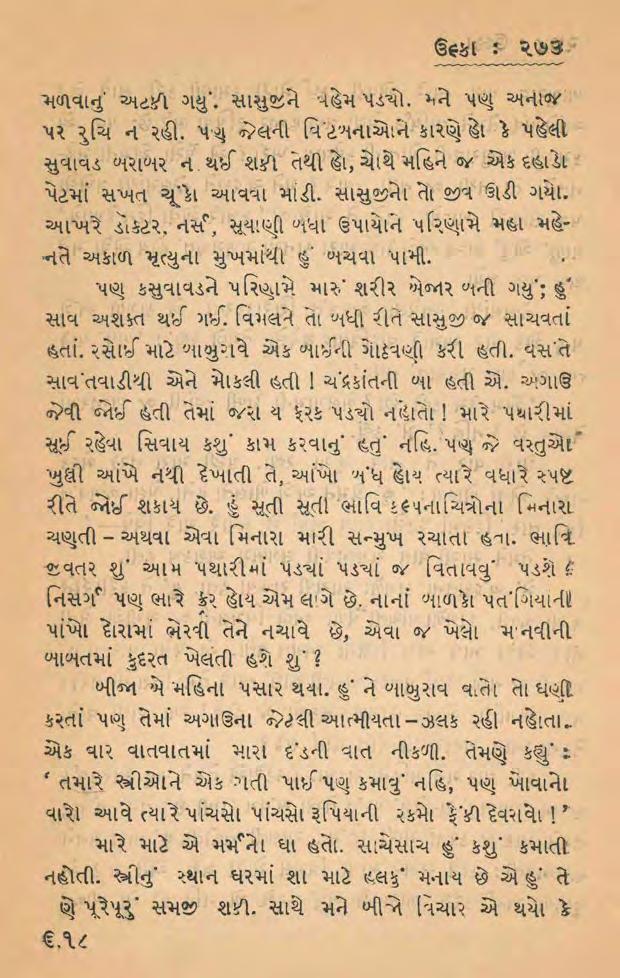 ઉલ્કા : ૨૭૩
મળવાનું અટકી ગયું. સાસુજીને વહેમ પડ્યો. મને પણ અનાજ
પર રુચિ ન રહી. પણ જેલની વિટંબનાઓને કારણે હો કે પહેલી
સુવાવડ બરાબર ન થઈ શકી તેથી હો, ચોથે મહિને જ એક દહાડો
પેટમાં સખત ચૂંકો આવવા માંડી. સાસુજીનો તો જીવ ઊડી ગયો.
આખરે ડૉક્ટર, નર્સ, સૂયાણી બધા ઉપાયોને પરિણામે મહા મહે-
નતે અકાળ મૃત્યુના મુખમાંથી હું બચવા પામી.
પણ કસુવાવડને પરિણામે મારું શરીર બેજાર બની ગયું; હું
સાવ અશક્ત થઈ ગઈ. વિમલને તો બધી રીતે સાસુજી જ સાચવતાં
હતાં. રસોઈ માટે બાબુરાવે એક બાઈની ગોઠવણી કરી હતી. વસંતે
સાવંતવાડીથી એને મોકલી હતી ! ચંદ્રકાંતની બા હતી એ. અગાઉ
જેવી જોઈ હતી તેમાં જરા ય ફરક પડ્યો નહોતો ! મારે પથારીમાં
સૂઈ રહેવા સિવાય કશું કામ કરવાનું હતું નહિ. પણ જે વસ્તુઓ
ખુલ્લી આંખે નથી દેખાતી તે, આંખો બંધ હોય ત્યારે વધારે સ્પષ્ટ
રીતે જોઈ શકાય છે. હું સૂતી સૂતી ભાવિ કલ્પનાચિત્રોના મિનારા
ચણતી – અથવા એવા મિનારા મારી સન્મુખ રચાતા હતા. ભાવિ
જીવતર શું આમ પથારીમાં પડ્યાં પડ્યાં જ વિતાવવું પડશે ?
નિસર્ગ પણ ભારે ક્રૂર હોય એમ લાગે છે. નાનાં બાળકો પતંગિયાની
પાંખો દોરામાં ભેરવી તેને નચાવે છે, એવા જ ખેલો માનવીની
બાબતમાં કુદરત ખેલતી હશે શું ?
બીજા બે મહિના પસાર થયા. હું ને બાબુરાવ વાતો તો ઘણી
કરતાં પણ તેમાં અગાઉના જેટલી આત્મીયતા – ઝલક રહી નહોતા.
એક વાર વાતવાતમાં મારા દંડની વાત નીકળી. તેમણે કહ્યું :
‘ તમારે સ્ત્રીઓને એક રાતી પાઈ પણ કમાવું નહિ, પણ ખોવાનો
વારો આવે ત્યારે પાંચસો પાંચસો રૂપિયાની રકમો ફેંકી દેવરાવો ! ’
મારે માટે એ મર્મનો ઘા હતો. સાચેસાચ હું કશું કમાતી
નહોતી. સ્ત્રીનું સ્થાન ઘરમાં શા માટે હલકું મનાય છે એ હું તે
ણે પૂરેપૂરું સમજી શકી. સાથે મને બીજો વિચાર એ થયો કે
ઉ.૧૮